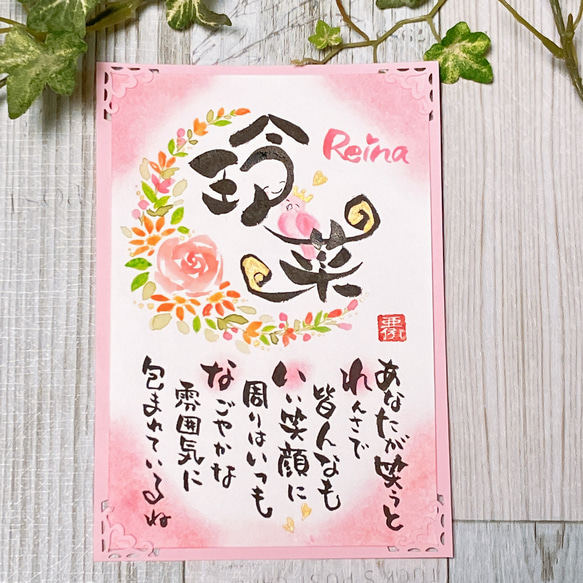 玲菜
Reina
あなたが笑うと
れんさで
皆んなも
いい笑顔に
周りはいつも
なごやかな
雰囲気に
包まれているね